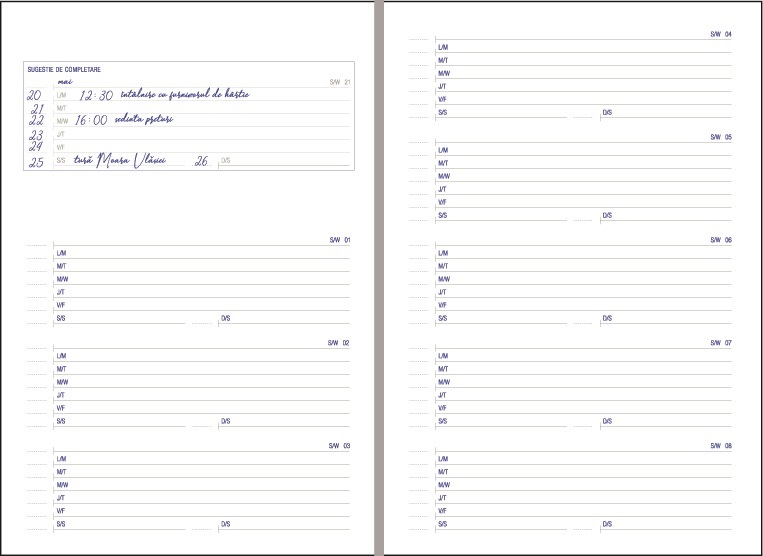 SUGESTIE DE COMPLETARE
mai S/W 21
20 L/M 12:30 întâlnire cu furnizorul de hârtie
21 M/T
22 M/W 16:00 sedinta preturi
23 J/T
24 V/F
25 S/S tură Moara Vlăsiei 26 D/S
S/W 01
L/M
M/T
M/W
J/T
V/F
S/S D/S
S/W 02
L/M
M/T
M/W
J/T
V/F
S/S D/S
S/W 03
L/M
M/T
M/W
J/T
V/F
S/S D/S
S/W 04
L/M
M/T
M/W
J/T
V/F
S/S D/S
S/W 05
L/M
M/T
M/W
J/T
V/F
S/S D/S
S/W 06
L/M
M/T
M/W
J/T
V/F
S/S D/S
S/W 07
L/M
M/T
M/W
J/T
V/F
S/S D/S
S/W 08
L/M
M/T
M/W
J/T
V/F
S/S D/S